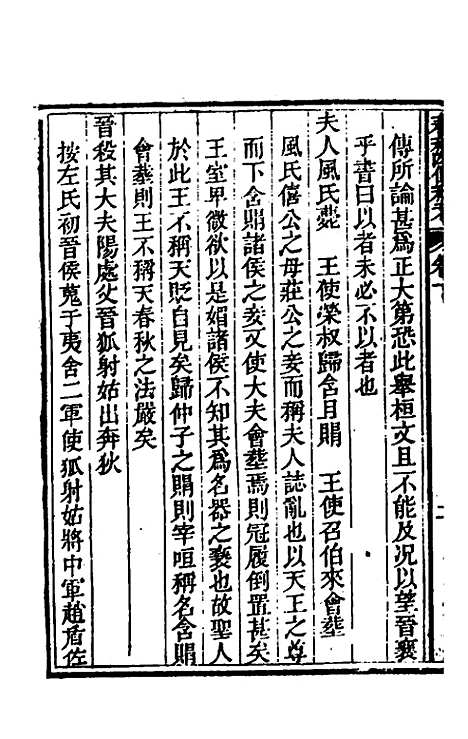 傳所論甚爲正大第恐此舉桓文且不能及况以望晉襄
乎書曰以者未必不以者也
夫人風氏薨　王使榮叔歸含且賵　王使召伯來會塟
風氏僖公之母莊公之妾而稱夫人誌亂也以天王之尊
而下含賵諸侯之妾又使大夫會塟焉則冠履倒置甚矣
王室卑微欲以是媚諸侯不知其爲名器之褻也故聖人
於此王不稱天貶自見矣歸仲子之賵則宰咺稱名含賵
會塟則王不稱天春秋之法嚴矣
晉殺其大夫陽處父晉狐射姑出奔狄
按左氏初晉侯蒐于夷舍二軍使狐射姑將中軍趙盾佐